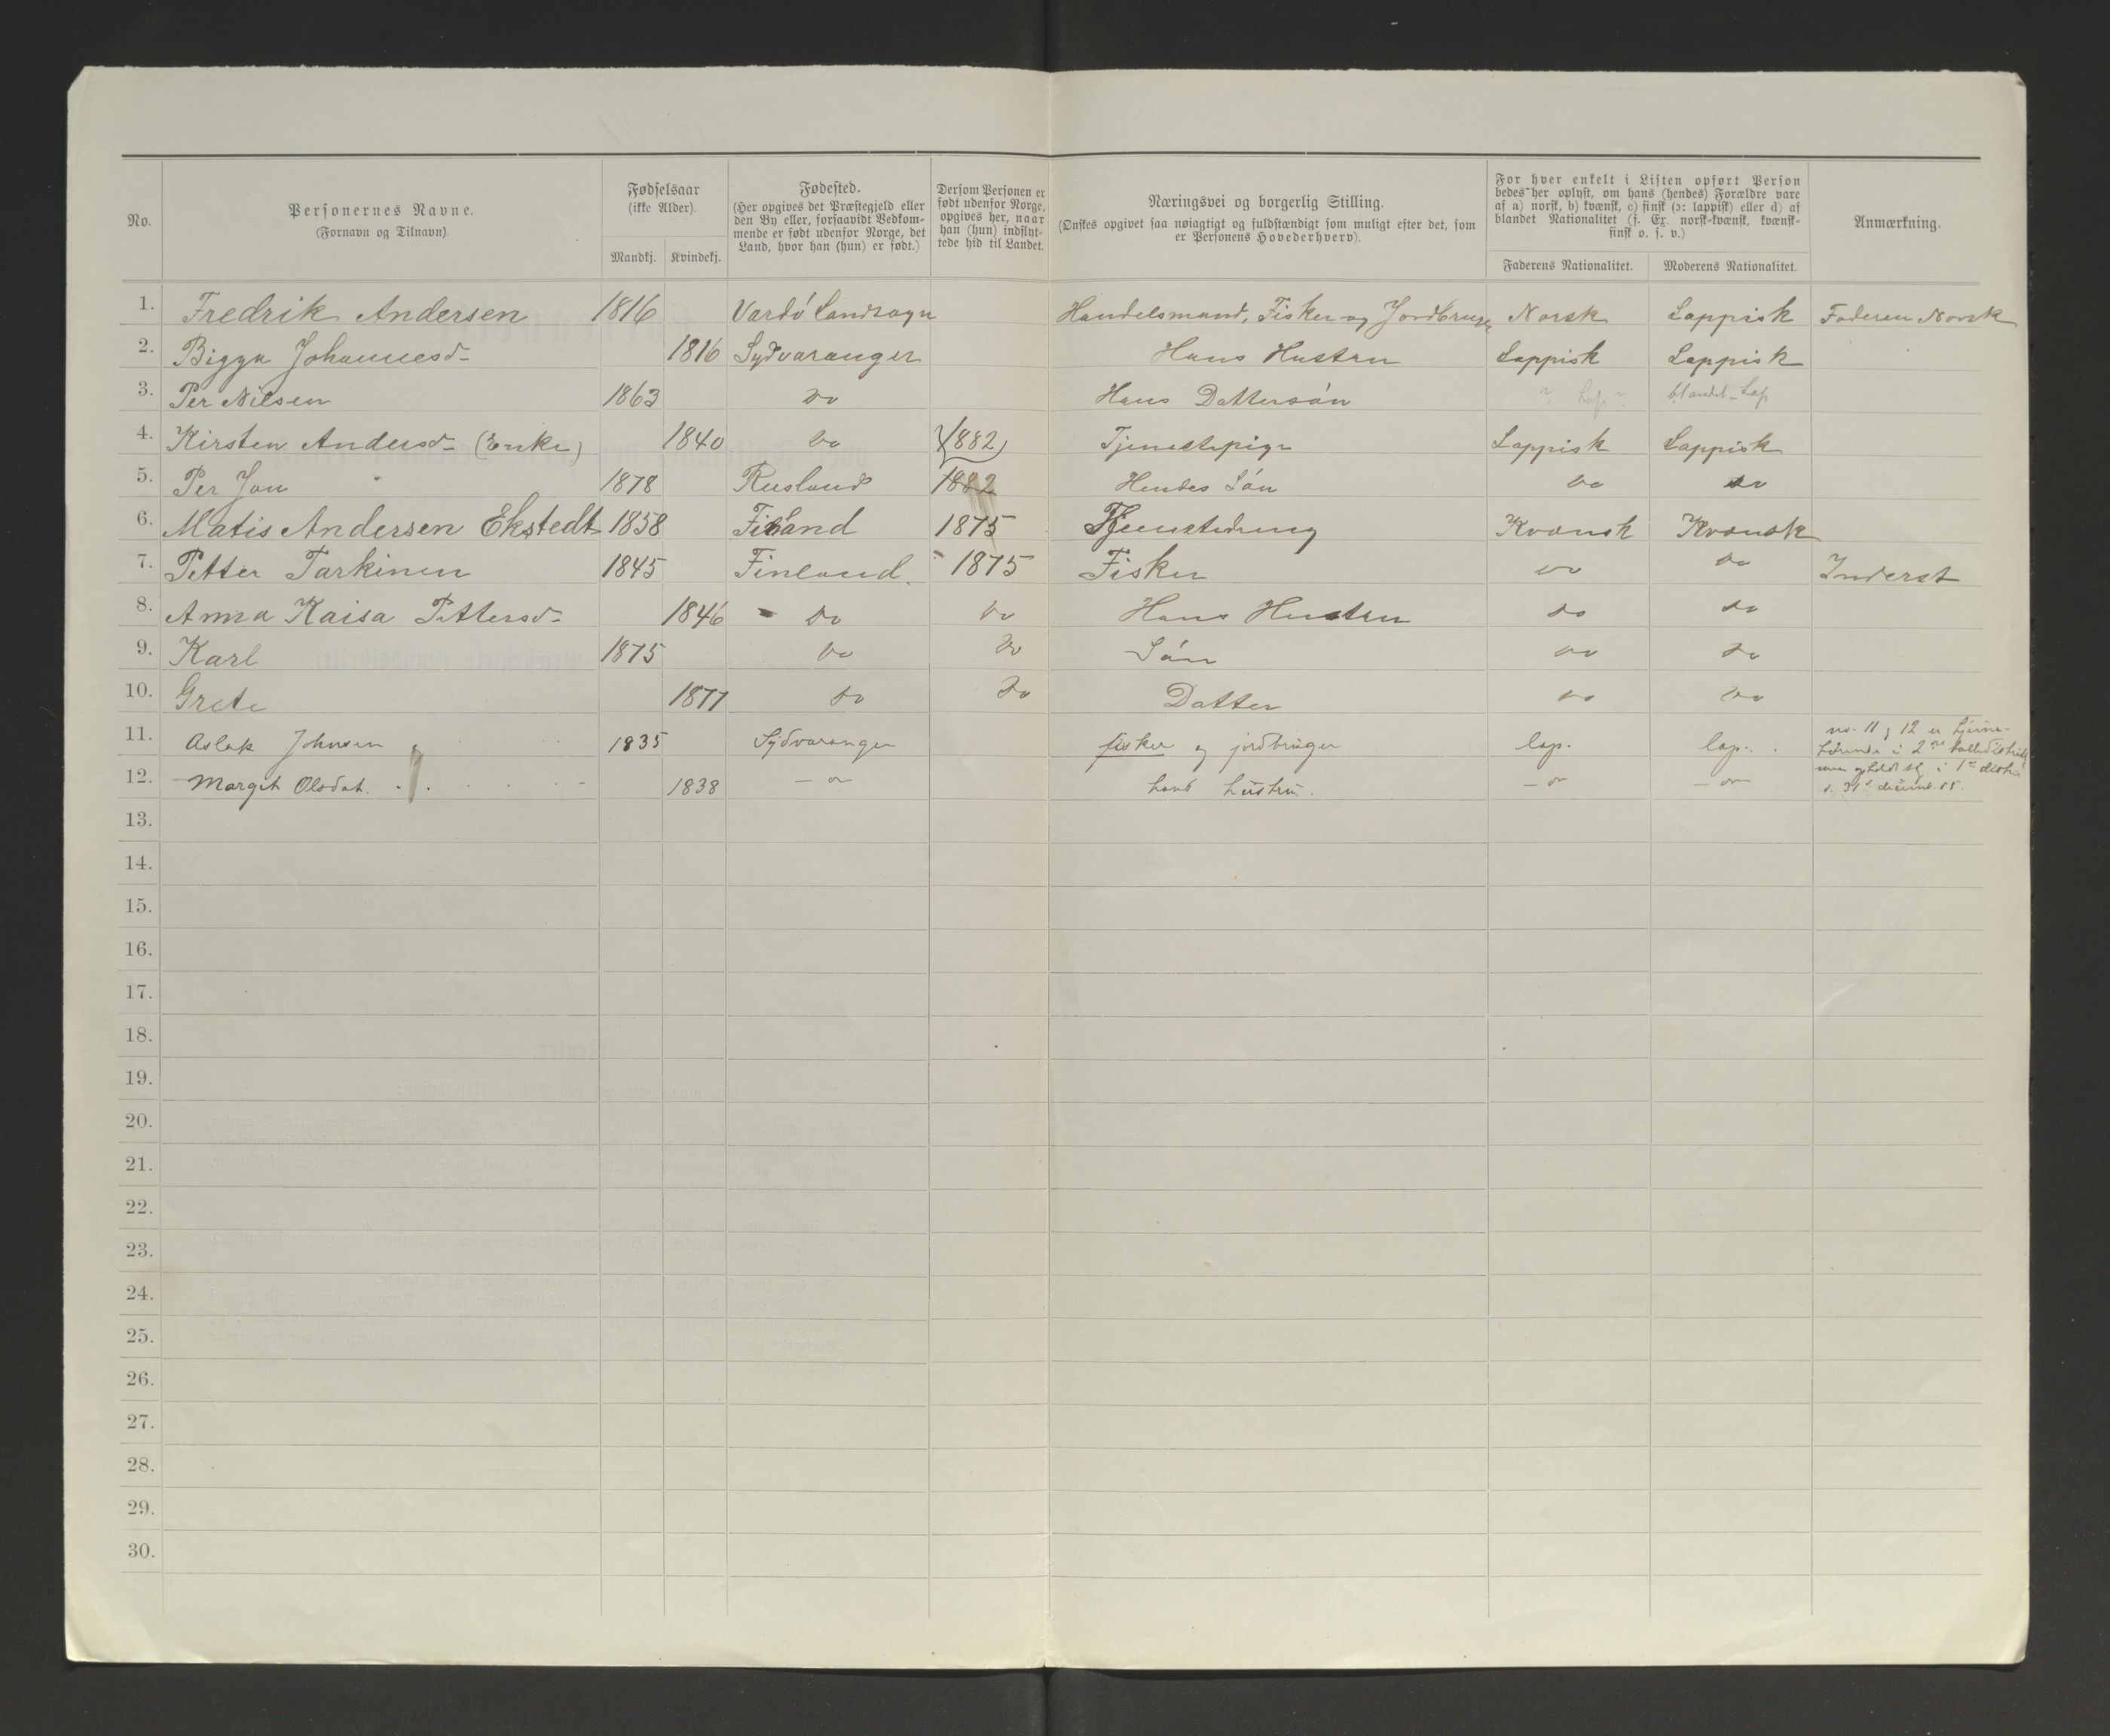 No.
Personernes Navne.
(Fornavn og Tilnavn).
Fødselsaar
(ikke Alder).
Mandkj. Kvindekj.
Fødested.
(Her opgives det Præstegjeld eller
den By eller, forsaavidt Vedkom-
mende er født udenfor Norge, det
Land, hvor han (hun) er født.)
Dersom Personen er
født udenfor Norge,
opgives her, naar
han (hun) indflyt-
tede hid til Landet.
Næringsvei og borgerlig Stilling.
(Ønskes opgivet saa nøiagtigt og fuldstændigt som muligt efter det, som
er Personens Hovederhverv).
For hver enkelt i Listen opført Person
bedes her oplyst, om hans (hendes) Forældre vare
af a) norsk, b) kvænsk, c) finsk (ɔ: lappisk) eller d) af
blandet Nationalitet (f. Ex. norsk-kvænsk, kvænsk-
finsk o. s. v.)
Faderens Nationalitet. Moderens Nationalitet.
Anmærkning.
1. Fredrik Andersen 1816 Vardö Landsogn Handelsmand, Fisker og Jordbruger Norsk Lappisk Faderen Norsk
2. Bigga Johannesd- 1816 Sydvaranger Hans Hustru Lappisk Lappisk
3. Per Nilsen 1863 Do Hans Dattersön ? Lap ? blandet-Lap
4. Kirsten Andersd- (Enke) 1840 Do 1882 Tjenestepige Lappisk Lappisk
5. Per Jon 1878 Rusland 1882 Hendes Sön Do Do
6. Matis Andersen Ekstedt 1858 Finland 1875 Tjenestedreng Kvænsk Kvænsk
7. Petter Tarkinen 1845 Finland. 1875 Fisker Do Do Inderst
8. Anna Kaisa Pettersd- 1846 Do Do Hans Hustru Do Do
9. Karl 1875 Do Do Sön Do Do
10. Grete 1877 Do Do Datter Do Do
11. Aslak Johnsen 1835 Sydvaranger fisker og jordbruger lap. lap.
no. 11 og 12 er hjemme-
hørende i 2
12. Margit Olsdat. 1838 - " hans hustru. - " - "
13.
14.
15.
16.
17.
18.
19.
20.
21.
22.
23.
24.
25.
26.
27.
28.
29.
30.